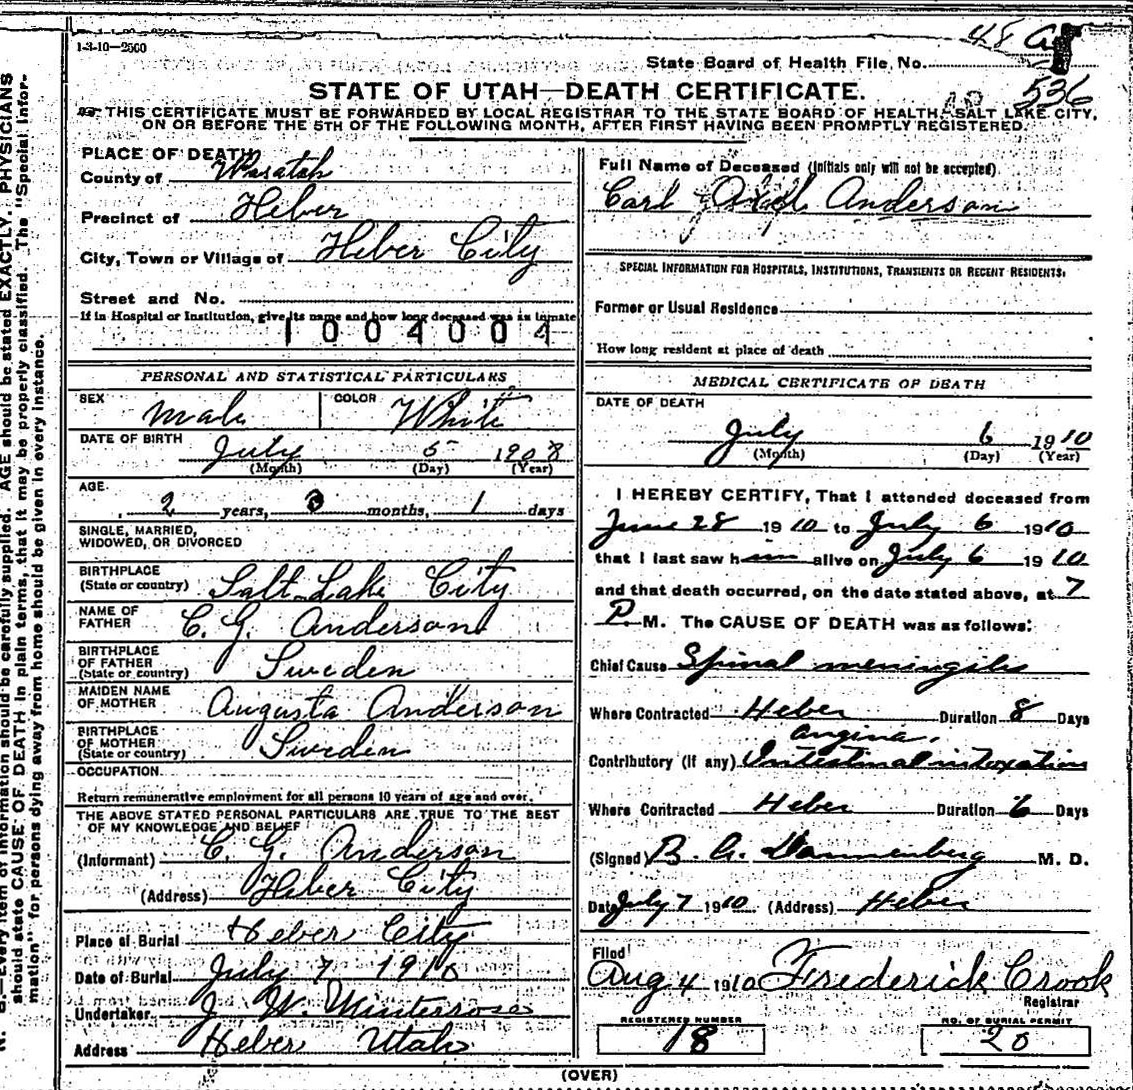 1-3-10—2500
48
State Board of Health File No.
536
STATE OF UTAH—DEATH CERTIFICATE.
THIS CERTIFICATE MUST BE FORWARDED BY LOCAL REGISTRAR TO THE STATE BOARD OF HEALTH, SALT LAKE CITY,
ON OR BEFORE THE 5TH OF THE FOLLOWING MONTH, AFTER FIRST HAVING BEEN PROMPTLY REGISTERED.
PLACE OF DEATH
County of Wasatch
Precinct of Heber
City, Town or Village of Heber City
Street and No.
If in Hospital or Institution, give its name and how long deceased was an inmate
1004004
PERSONAL AND STATISTICAL PARTICULARS
SEX Male COLOR White
DATE OF BIRTH
July 5 1908
(Month) (Day) (Year)
AGE.
2 years, 0 months, 1 days
SINGLE, MARRIED,
WIDOWED, OR DIVORCED
BIRTHPLACE
(State or country) Salt Lake City
NAME OF
FATHER C. G. Anderson
BIRTHPLACE
OF FATHER
(State or country) Sweden
MAIDEN NAME
OF MOTHER Augusta Anderson
BIRTHPLACE
OF MOTHER
(State or country) Sweden
OCCUPATION
Return remunerative employment for all persons 10 years of age and over.
THE ABOVE STATED PERSONAL PARTICULARS ARE TRUE TO THE BEST
OF MY KNOWLEDGE AND BELIEF
(Informant) C. G. Anderson
(Address) Heber City
Place of Burial Heber City
Date of Burial July 7 1910
Undertaker J. W. Winterrose
Address Heber Utah
Full Name of Deceased (Initials only will not be accepted)
Carl Anderson
SPECIAL INFORMATION FOR HOSPITALS, INSTITUTIONS, TRANSIENTS OR RECENT RESIDENTS.
Former or Usual Residence
How long resident at place of death
MEDICAL CERTIFICATE OF DEATH
DATE OF DEATH
July 6 1910
(Month) (Day) (Year)
I HEREBY CERTIFY, That I attended deceased from
June 28 1910 to July 6 1910
that I last saw him alive on July 6 1910
and that death occurred, on the date stated above, at 7
P. M. The CAUSE OF DEATH was as follows:
Chief Cause Spinal meningitis
Where Contracted Heber Duration 8 Days
angina.
Contributory (if any) Intestinal intoxation
Where Contracted Heber Duration 6 Days
(Signed) B. G. Dannenberg M. D.
Date July 7 1910 (Address) Heber
Filed
Aug 4 1910 Frederick Crook
Registrar
REGISTERED NUMBER
18
NO. OF BURIAL PERMIT
20
(OVER)
N. B.—Every item of information should be carefully supplied. AGE should be stated EXACTLY. PHYSICIANS
should state CAUSE OF DEATH in plain terms, that it may be properly classified. The "Special Infor-
mation" for persons dying away from home should be given in every instance.